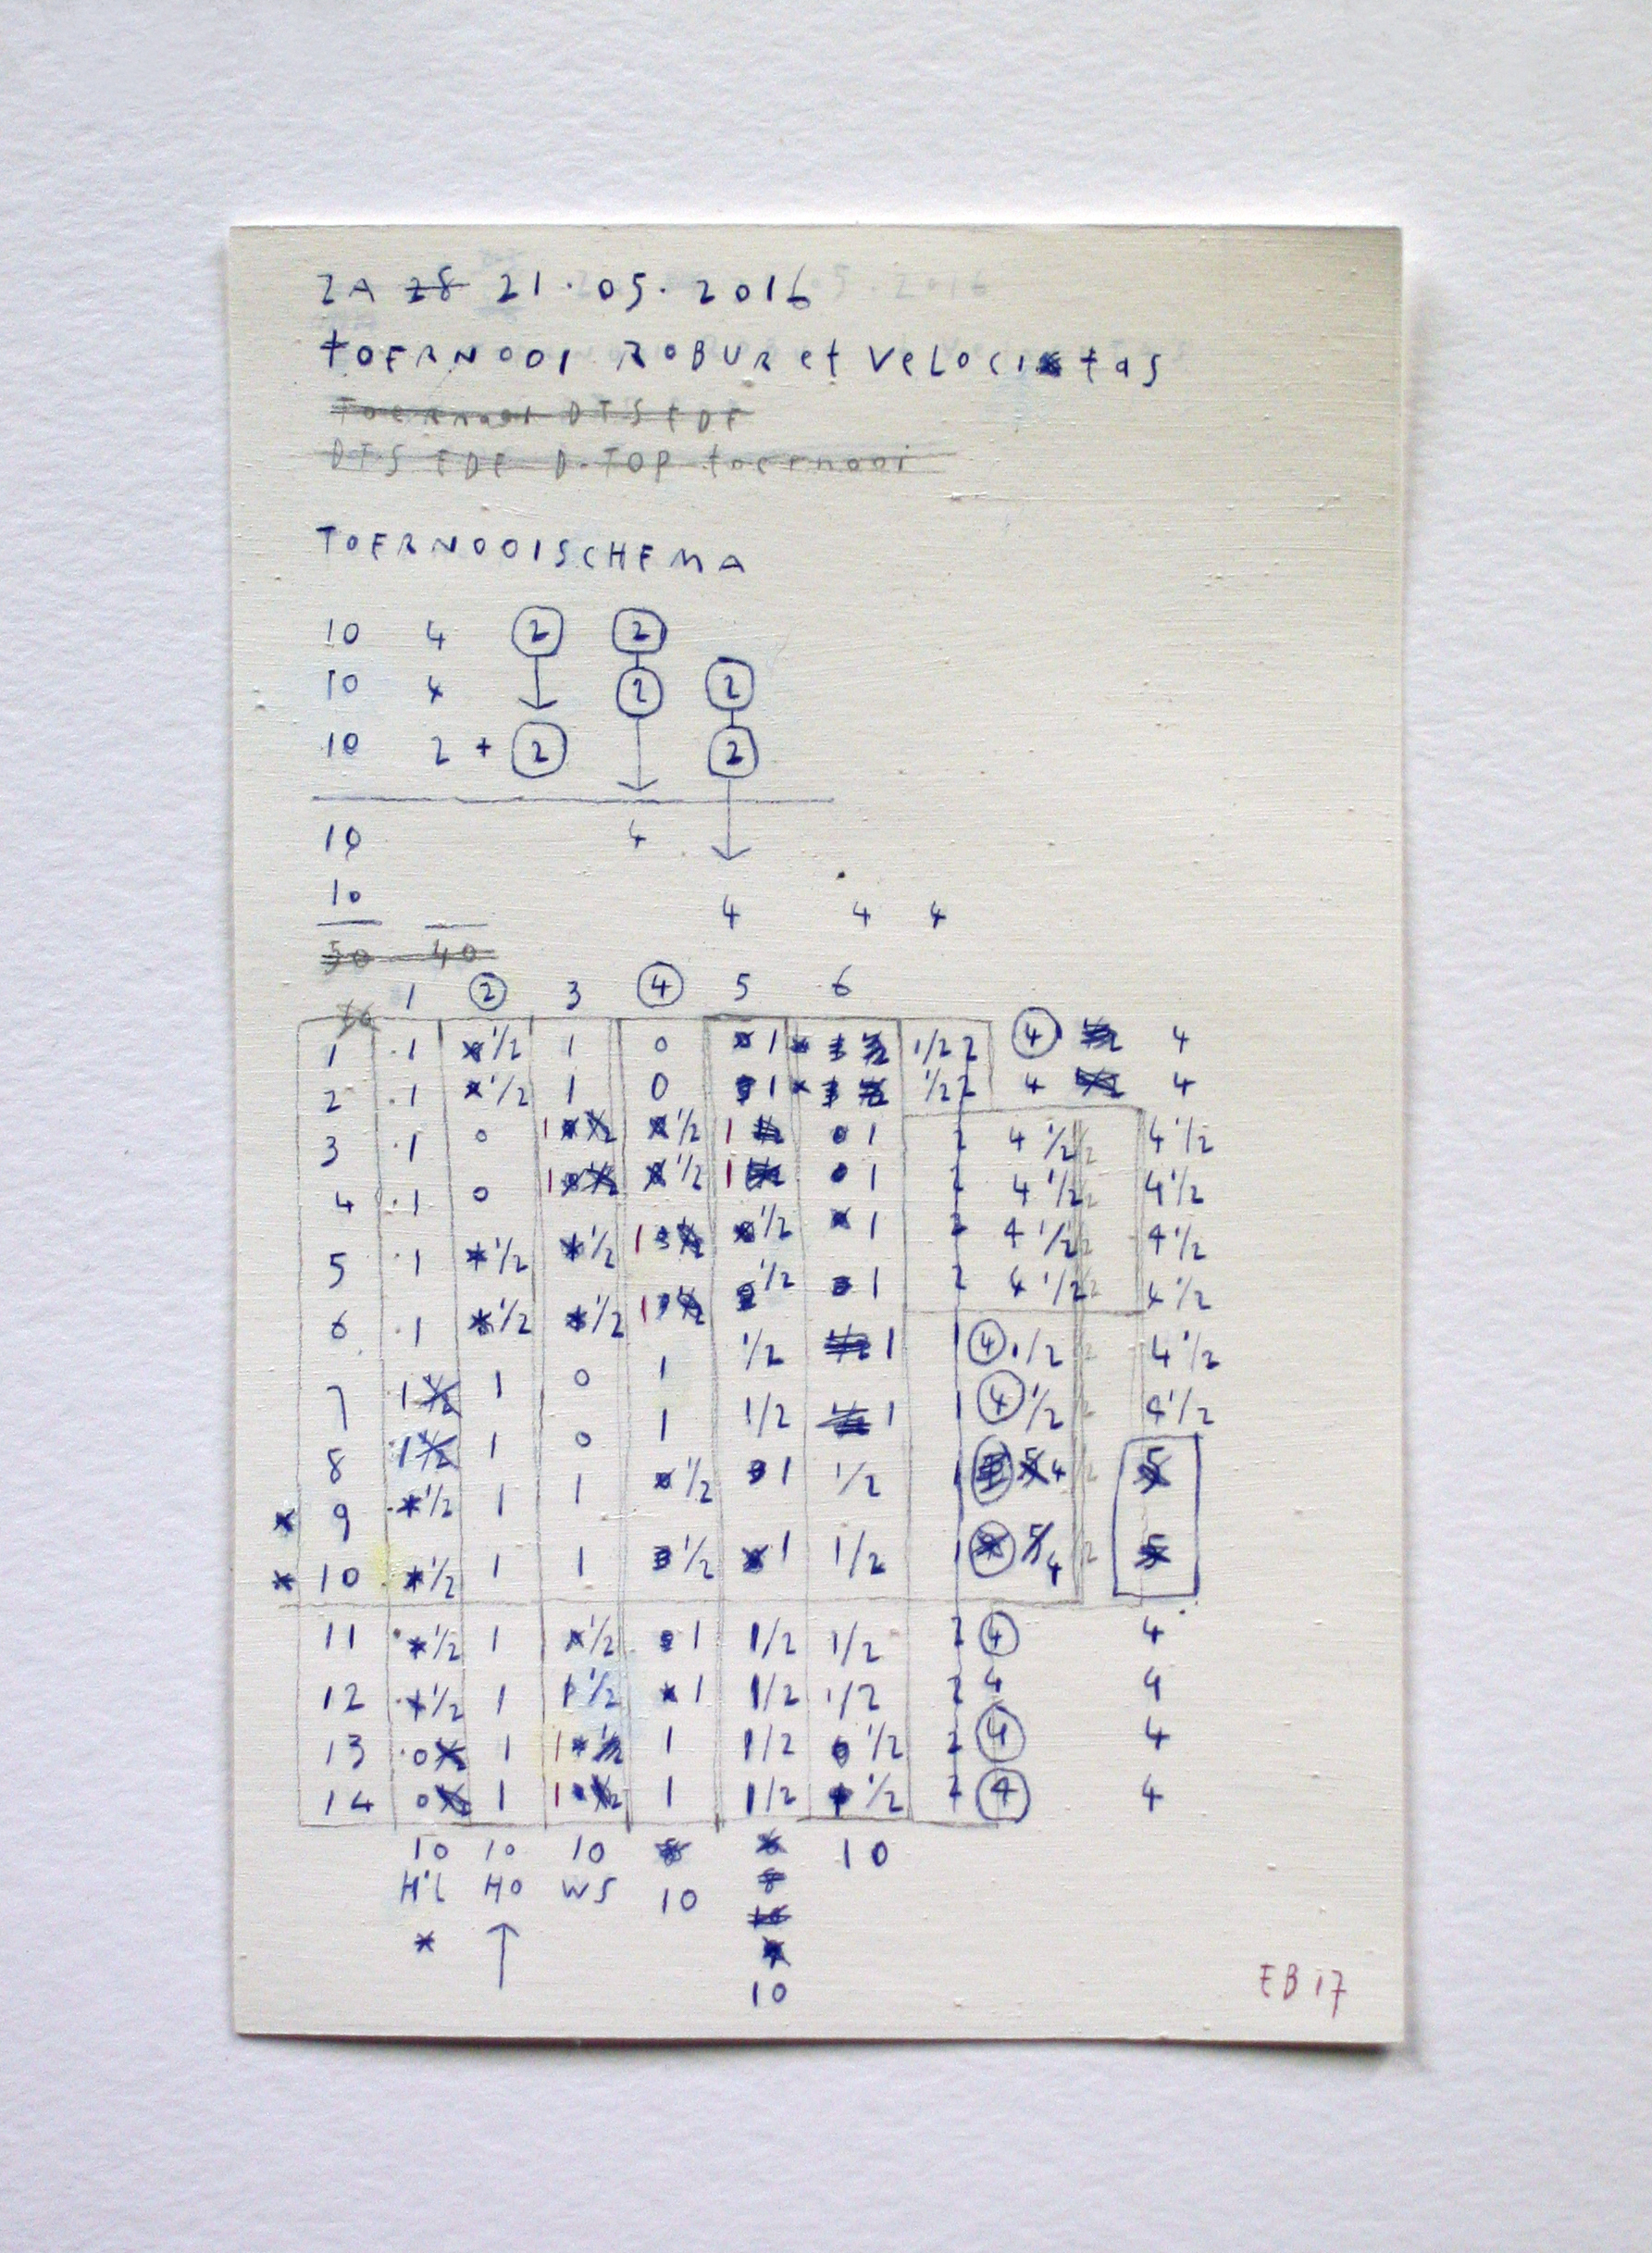 ZA 28 21.05.2016
tOERNOOI ROBUR et VELOCItas
Toernooi DTS EDE
DTS EDE D-TOP toernooi
TOERNOOISCHEMA
10 4 2 2
10 4 2 2
10 2 + 2 2
10 4
10 4 4 4
50 40
1 2 3 4 5 6
1 1 1/2 1 0 1 1/2 2 4 4
2 1 1/2 1 0 1 1/2 2 4 4
3 1 0 1 1/2 1 0 1 2 4 1/2 4 1/2
4 1 0 1 1/2 1 0 1 2 4 1/2 4 1/2
5 1 1/2 1/2 1 1/2 1 2 4 1/2 4 1/2
6 1 1/2 1/2 1 1/2 1 2 4 1/2 4 1/2
7 1 1 0 1 1/2 1 1 4 1/2 4 1/2
8 1 1 0 1 1/2 1 1 4 1/2 4 1/2
9 1/2 1 1 1/2 1 1/2 1 5 4 5
10 1/2 1 1 1/2 1 1/2 1 5 4 5
11 1/2 1 1/2 1 1/2 1/2 2 4 4
12 1/2 1 1/2 1 1/2 1/2 2 4 4
13 0 1 1 1 1/2 1/2 2 4 4
14 0 1 1 1 1/2 1/2 2 4 4
10 10 10 10
HL HO WS 10
10
EB 17